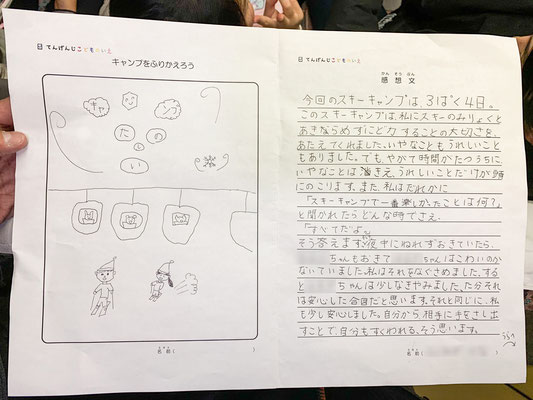 てんげんじこどもかい
キャンプをふりかえろう
キャンプ
たのしい
名前(
)
かん そう ぶん
感 想 文
今回のスキーキャンプは、3ぱく4日。
このスキーキャンプは、私にスキーのみりょくと
あきらめずにど力することの大切さを、
あたえてくれました。いやなこともうれしいこと
もありました。でも、やがて時間がたつうちに、
いやなことは消きえ、うれしいことだけが頭
にのこります。また、私はだれかに
「スキーキャンプで一番楽しかったことは何?」
と聞かれたらどんな時でさえ、
「すべてだよ。」
そう答えます。夜中にねれずおきていたら、
ちゃんもおきて
ちゃんはこわいのか
ないていました。私はそれをなぐさめました。する
と
ちゃんは少しなきやみました。たぶんそれ
は安心した合図だと思います。それと同じに、私
も少し安心しました。自分から、相手に手をさし出
すことで、自分もすくわれる、そう思います。
名前(
)
うらへ